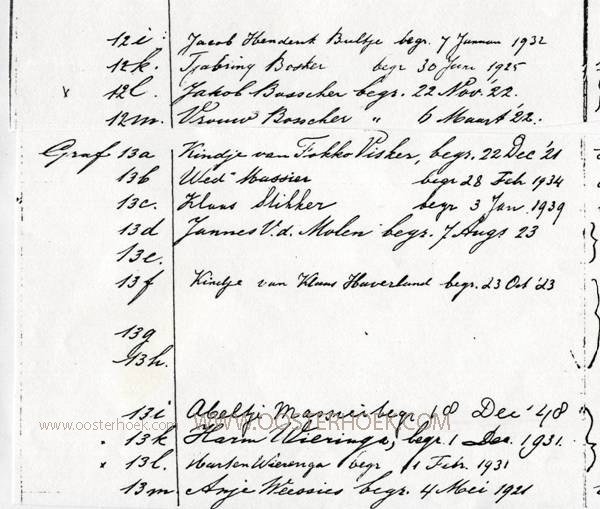 12i Jacob Henderik Bultje begr. 7 Januari 1932
12k. Tjabring Bosker begr 30 Jun 1925
x 12l. Jakob Bosscher begr. 22 Nov. '22.
12m. Vrouw Bosscher " 6 Maart '22.
Graf 13a Kindje van Fokko Visker, begr. 22 Dec '21
13b Wed Massier begr 28 Feb 1934
13c. Klaas Slikker begr 3 Jan 1939
13d Jannes V.d. Molen begr. 7 Augs 23
13e.
13f Kindje van Klaas Haverland begr. 23 Oct '23
13g
13h.
13i Abeltje begr 18 Dec '48 "
www.oosterhoek.com WWW.OOSTERHOEK.COM
. 13k Harm Wieringa, begr. 1 Dec. 1931.
x 13l. Marten Wierenga begr 1 Febr. 1931
13m. Anje Weessies begr. 4 Mei 1921